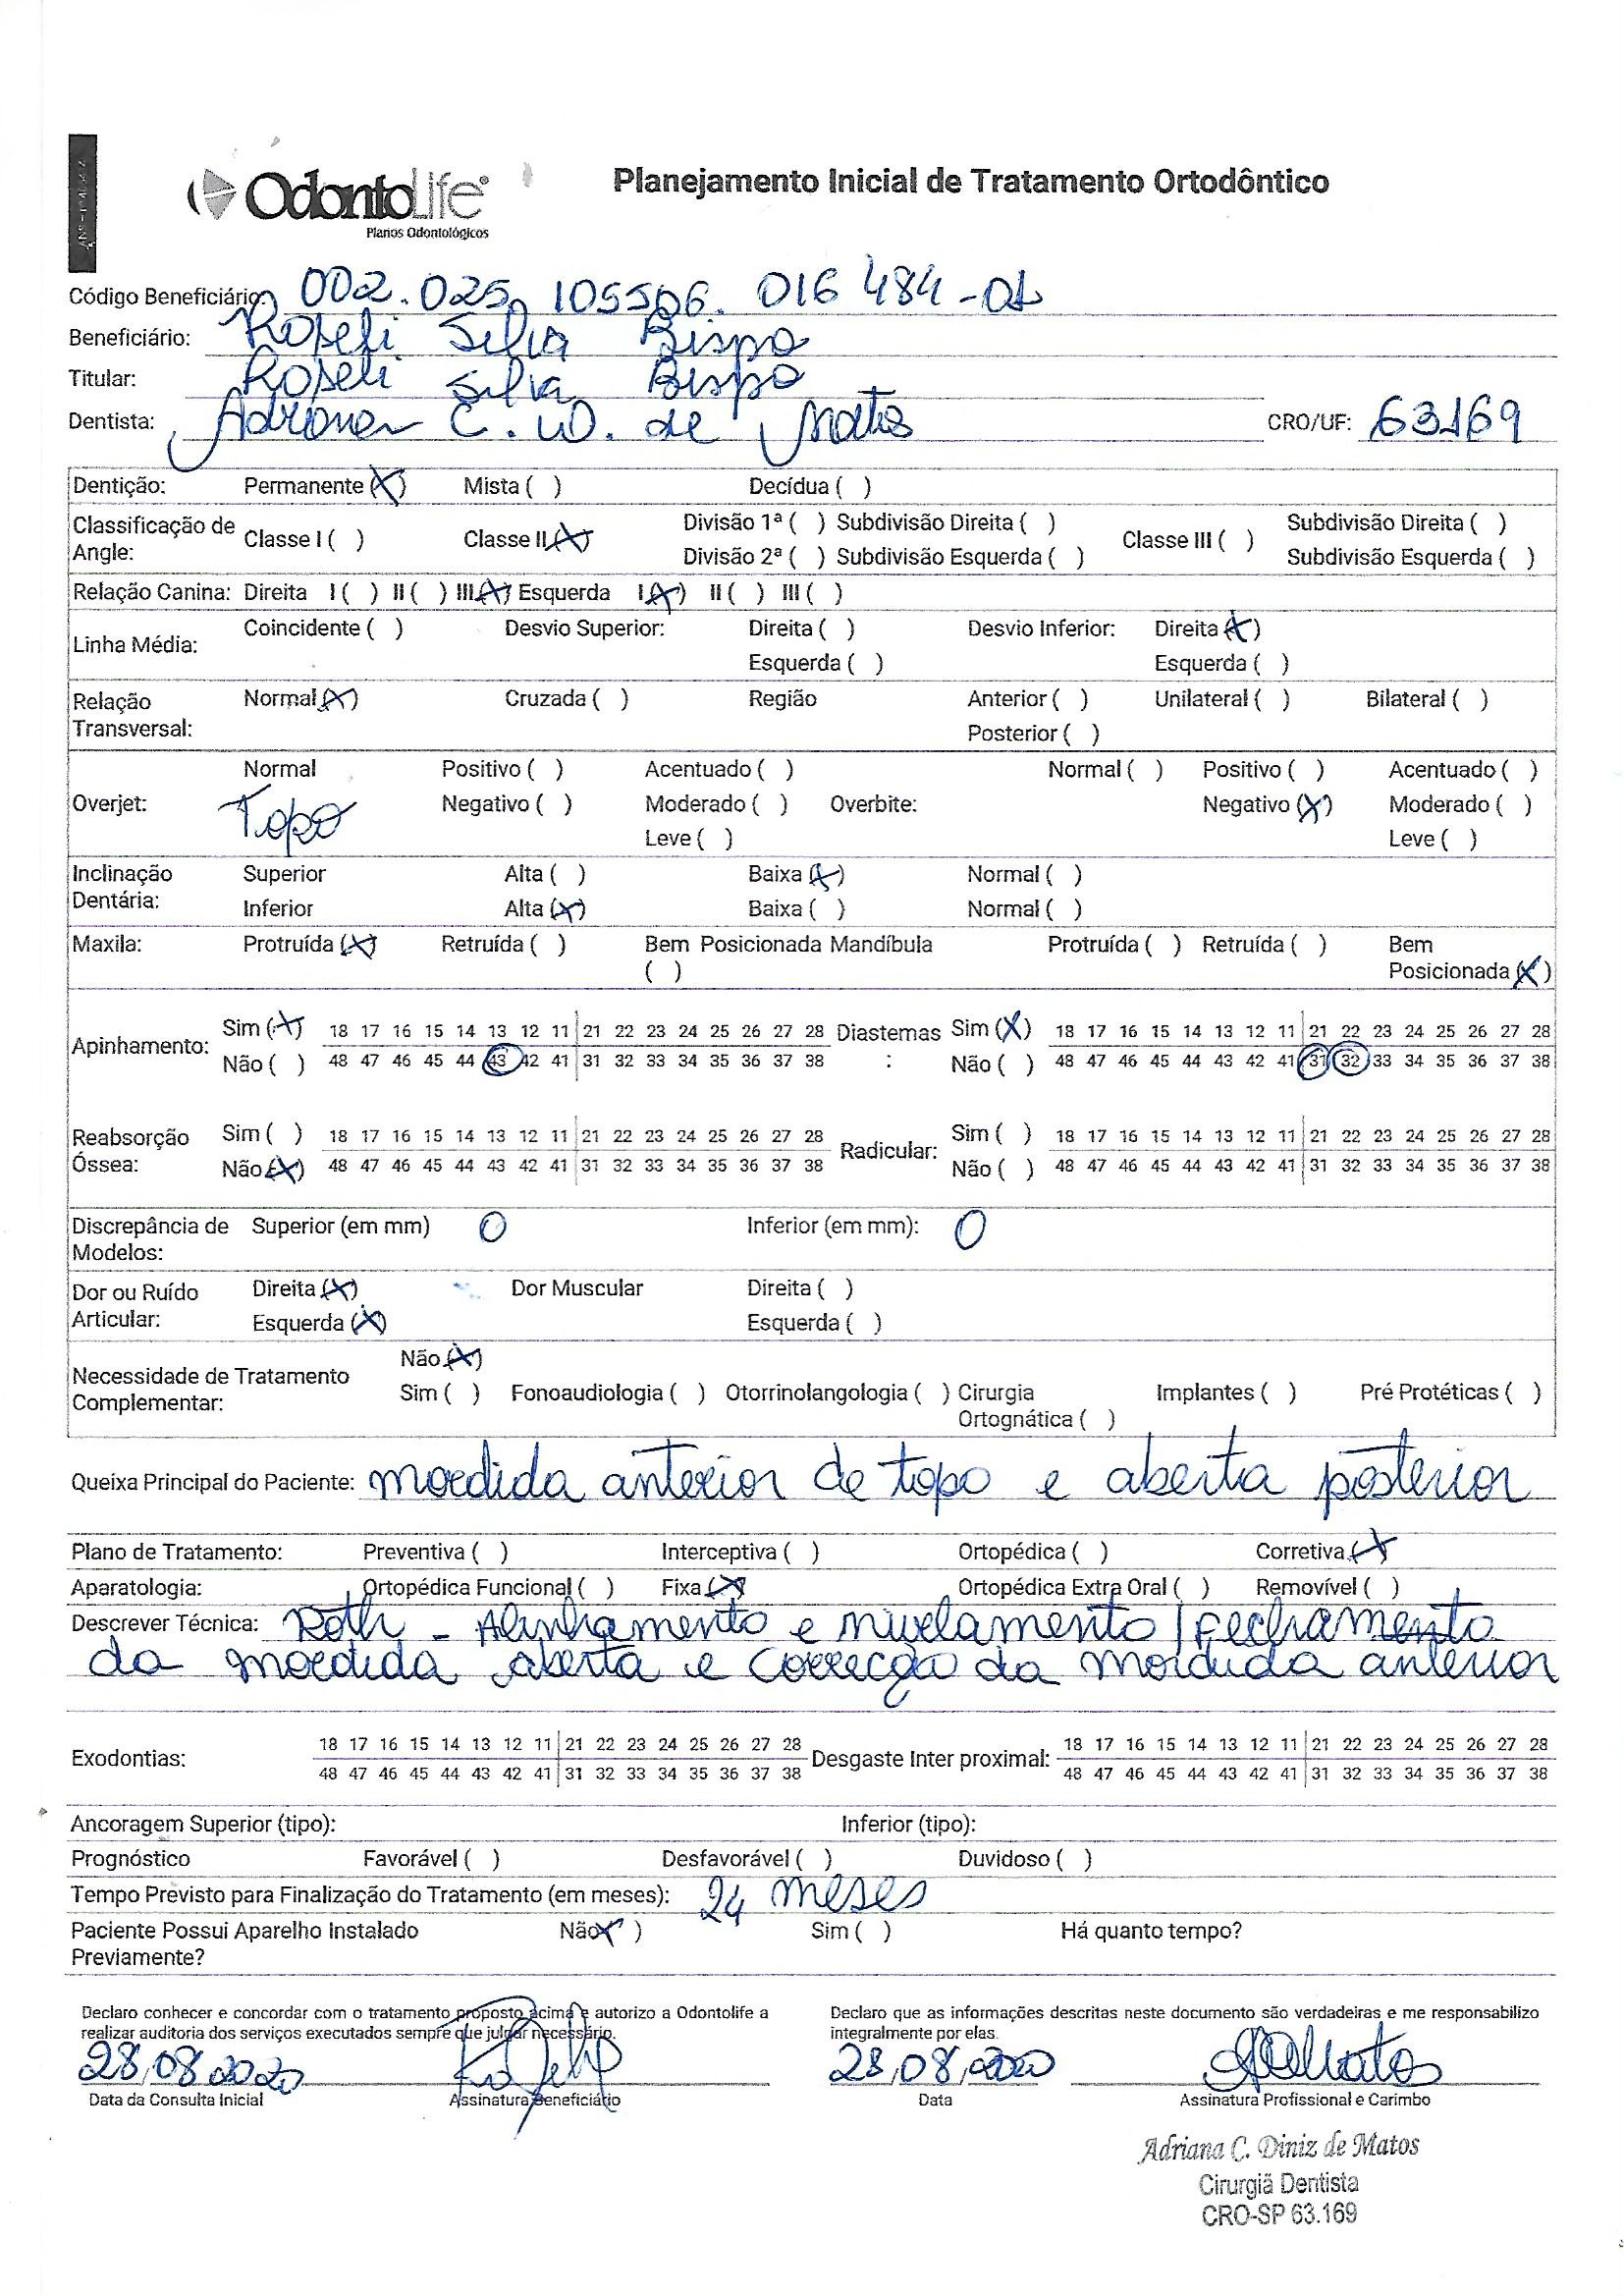 OdontoLife®
Planos Odontológicos
Planejamento Inicial de Tratamento Ortodôntico
Código Beneficiário: 002.025.105506.016484-01
Beneficiário: Roseli Silva Bispo
Titular: Roseli Silva Bispo
Dentista: Adriana C. D. de Matos CRO/UF: 63169
Dentição: Permanente (X) Mista ( ) Decídua ( )
Classificação de Angle: Classe I ( ) Classe II (X) Divisão 1ª ( ) Subdivisão Direita ( ) Classe III ( ) Subdivisão Direita ( )
Divisão 2ª ( ) Subdivisão Esquerda ( ) Subdivisão Esquerda ( )
Relação Canina: Direita I ( ) II ( ) III (X) Esquerda I (X) II ( ) III ( )
Linha Média: Coincidente ( ) Desvio Superior: Direita ( ) Desvio Inferior: Direita (X)
Esquerda ( ) Esquerda ( )
Relação Transversal: Normal (X) Cruzada ( ) Região Anterior ( ) Unilateral ( ) Bilateral ( )
Posterior ( )
Normal Positivo ( ) Acentuado ( ) Normal ( ) Positivo ( ) Acentuado ( )
Overjet: Topo Negativo ( ) Moderado ( ) Overbite: Negativo (X) Moderado ( )
Leve ( ) Leve ( )
Inclinação Dentária: Superior Alta ( ) Baixa (X) Normal ( )
Inferior Alta (X) Baixa ( ) Normal ( )
Maxila: Protruída (X) Retruída ( ) Bem Posicionada ( ) Mandíbula Protruída ( ) Retruída ( ) Bem Posicionada (X)
Apinhamento: Sim (X) 18 17 16 15 14 13 12 11 21 22 23 24 25 26 27 28 Diastemas : Sim (X) 18 17 16 15 14 13 12 11 21 22 23 24 25 26 27 28
Não ( ) 48 47 46 45 44 43 42 41 31 32 33 34 35 36 37 38 Não ( ) 48 47 46 45 44 43 42 41 31 32 33 34 35 36 37 38
Reabsorção Óssea: Sim ( ) 18 17 16 15 14 13 12 11 21 22 23 24 25 26 27 28 Radicular: Sim ( ) 18 17 16 15 14 13 12 11 21 22 23 24 25 26 27 28
Não (X) 48 47 46 45 44 43 42 41 31 32 33 34 35 36 37 38 Não ( ) 48 47 46 45 44 43 42 41 31 32 33 34 35 36 37 38
Discrepância de Modelos: Superior (em mm) 0 Inferior (em mm): 0
Dor ou Ruído Articular: Direita (X) Dor Muscular Direita ( )
Esquerda (X) Esquerda ( )
Necessidade de Tratamento Complementar: Não (X)
Sim ( ) Fonoaudiologia ( ) Otorrinolangologia ( ) Cirurgia Ortognática ( ) Implantes ( ) Pré Protéticas ( )
Queixa Principal do Paciente: mordida anterior de topo e aberta posterior
Plano de Tratamento: Preventiva ( ) Interceptiva ( ) Ortopédica ( ) Corretiva (X)
Aparatologia: Ortopédica Funcional ( ) Fixa (X) Ortopédica Extra Oral ( ) Removível ( )
Descrever Técnica: Roth - Alinhamento e nivelamento / Fechamento
da mordida aberta e correcção da mordida anterior
Exodontias: 18 17 16 15 14 13 12 11 21 22 23 24 25 26 27 28 Desgaste Inter proximal: 18 17 16 15 14 13 12 11 21 22 23 24 25 26 27 28
48 47 46 45 44 43 42 41 31 32 33 34 35 36 37 38 48 47 46 45 44 43 42 41 31 32 33 34 35 36 37 38
Ancoragem Superior (tipo): Inferior (tipo):
Prognóstico Favorável ( ) Desfavorável ( ) Duvidoso ( )
Tempo Previsto para Finalização do Tratamento (em meses): 24 meses
Paciente Possui Aparelho Instalado Previamente? Não (X) Sim ( ) Há quanto tempo?
Declaro conhecer e concordar com o tratamento proposto acima e autorizo a Odontolife a
realizar auditoria dos serviços executados sempre que julgar necessário.
Declaro que as informações descritas neste documento são verdadeiras e me responsabilizo
integralmente por elas.
28/08/2020 28/08/2020
Data da Consulta Inicial Assinatura Beneficiário Data Assinatura Profissional e Carimbo
Adriana C. Diniz de Matos
Cirurgiã Dentista
CRO-SP 63.169